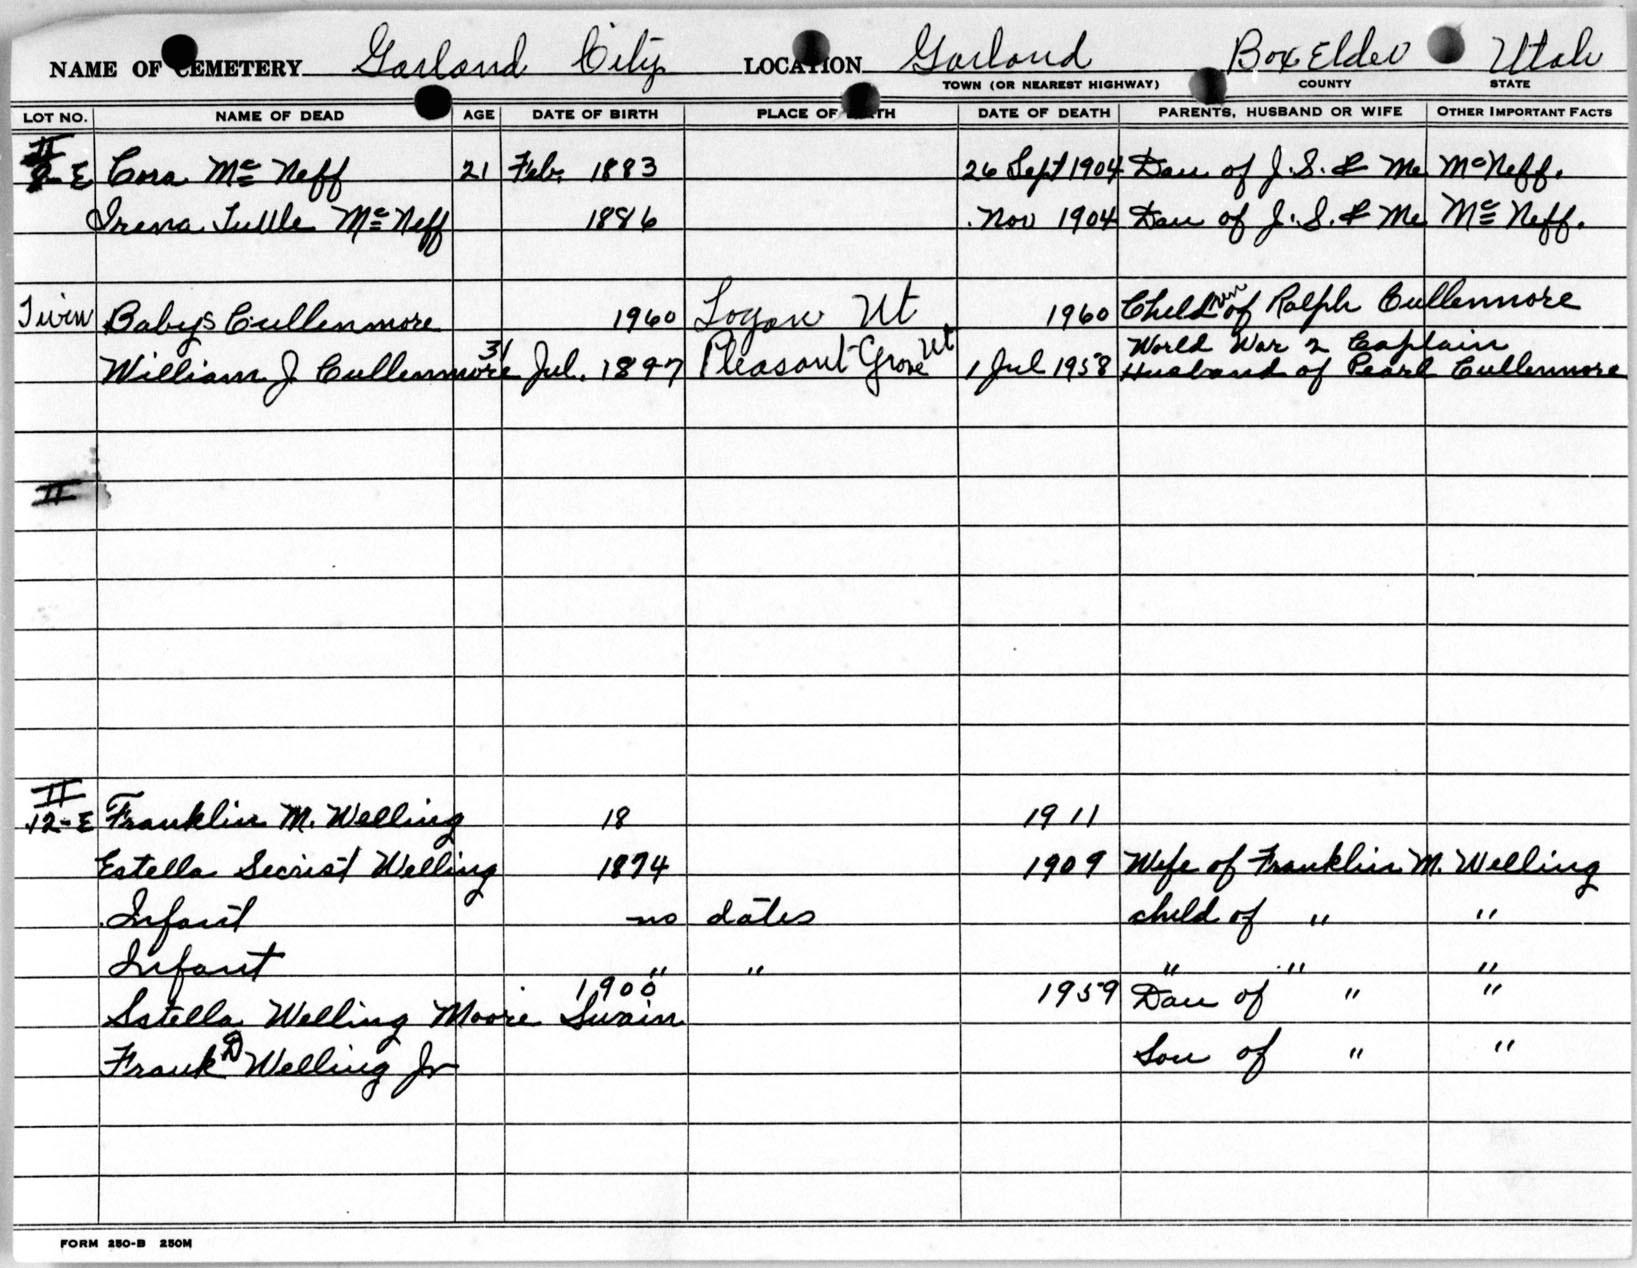 NAME OF CEMETERY Garland City LOCATION Garland Box Elder Utah
TOWN (OR NEAREST HIGHWAY) COUNTY STATE
LOT NO. NAME OF DEAD AGE DATE OF BIRTH PLACE OF BIRTH DATE OF DEATH PARENTS, HUSBAND OR WIFE OTHER IMPORTANT FACTS
II
E Cora Mc Neff 21 Feb. 1883 26 Sept 1904 Dau of J. S. & Mc McNeff.
Irena Tuttle Mc Neff 1886 Nov 1904 Dau of J. S. & Mc Mc Neff.
Twin Babys Cullenmore 1960 Logan Ut 1960 Children of Ralph Cullenmore
World War 2 Captain
William J Cullenmore 31 Jul. 1897 Pleasant Grove Ut 1 Jul 1958 Husband of Pearl Cullenmore
II
II
12-E Franklin M. Welling 18 1911
Estella Secrist Welling 1874 1909 Wife of Franklin M. Welling
Infant no dates child of " "
Infant " " " " "
1900 1959 Dau of " "
Sstella Welling Moore Swain
Frank D Welling Jr Son of " "
FORM 250-B 250M